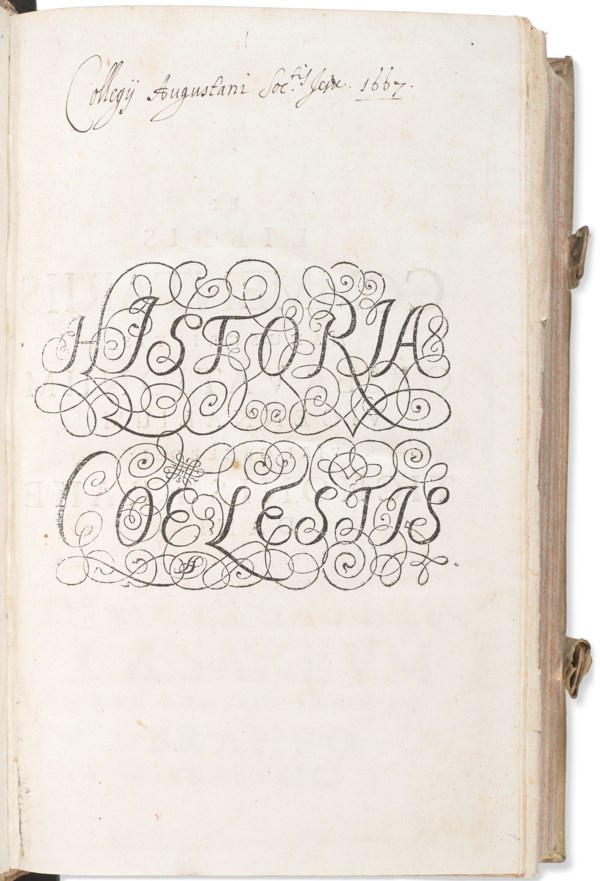 Collegij Augustani Soc.tis Jesu. 1667.
HISTORIA
COELESTIS